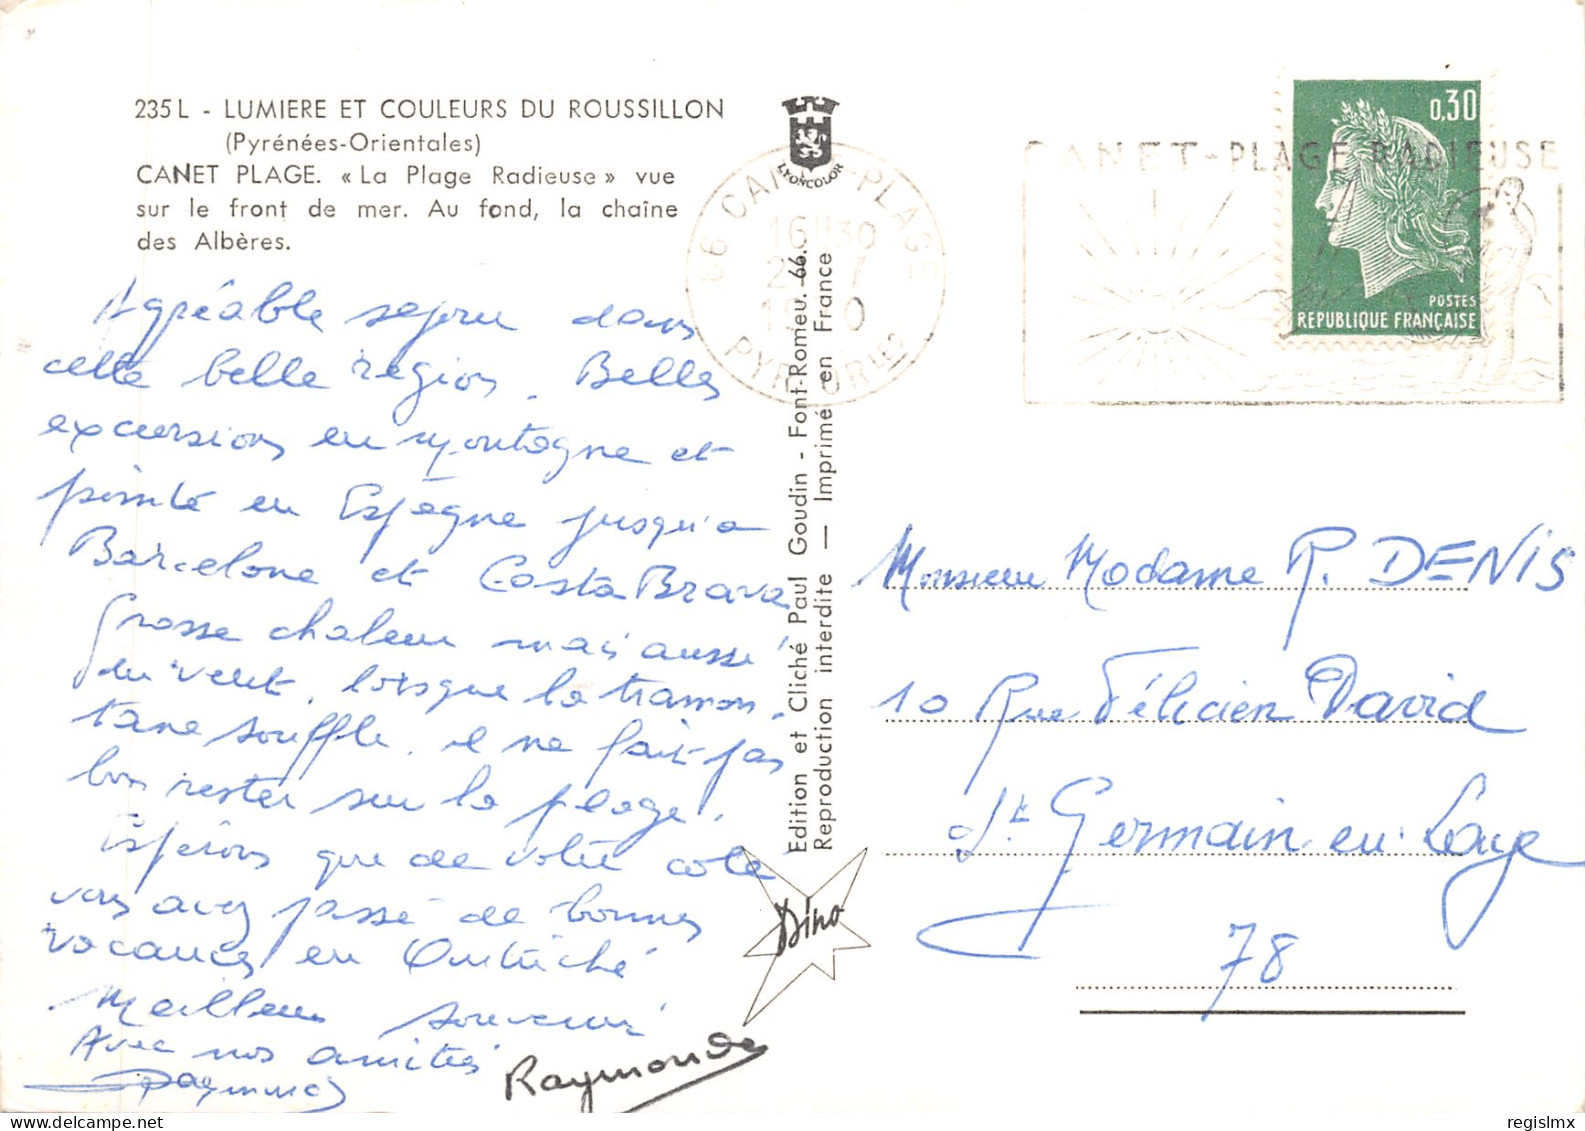 235 L - LUMIERE ET COULEURS DU ROUSSILLON
(Pyrénées-Orientales)
CANET PLAGE. « La Plage Radieuse » vue
sur le front de mer. Au fond, la chaîne
des Albères.
Agréable séjour dans
cette belle région. Belles
excursions en montagne et
pointe en Espagne jusqu'a
Barcelone et Costa Brava
Grosse chaleur mais aussi
du vent, lorsque la tramon-
tane souffle, il ne fait pas
bon rester sur la plage.
Espérons que de votre coté
vous avez passé de bonnes
vacances en Autriche
Meilleur souvenir
Avec nos amitiés
Raymonde
LYONCOLOR
66 CANET-PLAGE
16H30
PYR. ORIES
Edition et Cliché Paul Goudin - Font-Romeu. 66.
Reproduction interdite — Imprimé en France
Dino
CANET-PLAGE RADIEUSE
0,30
POSTES
REPUBLIQUE FRANÇAISE
Monsieur Madame R. DENIS
10 Rue Félicien David
St Germain en Laye
78
regislmx